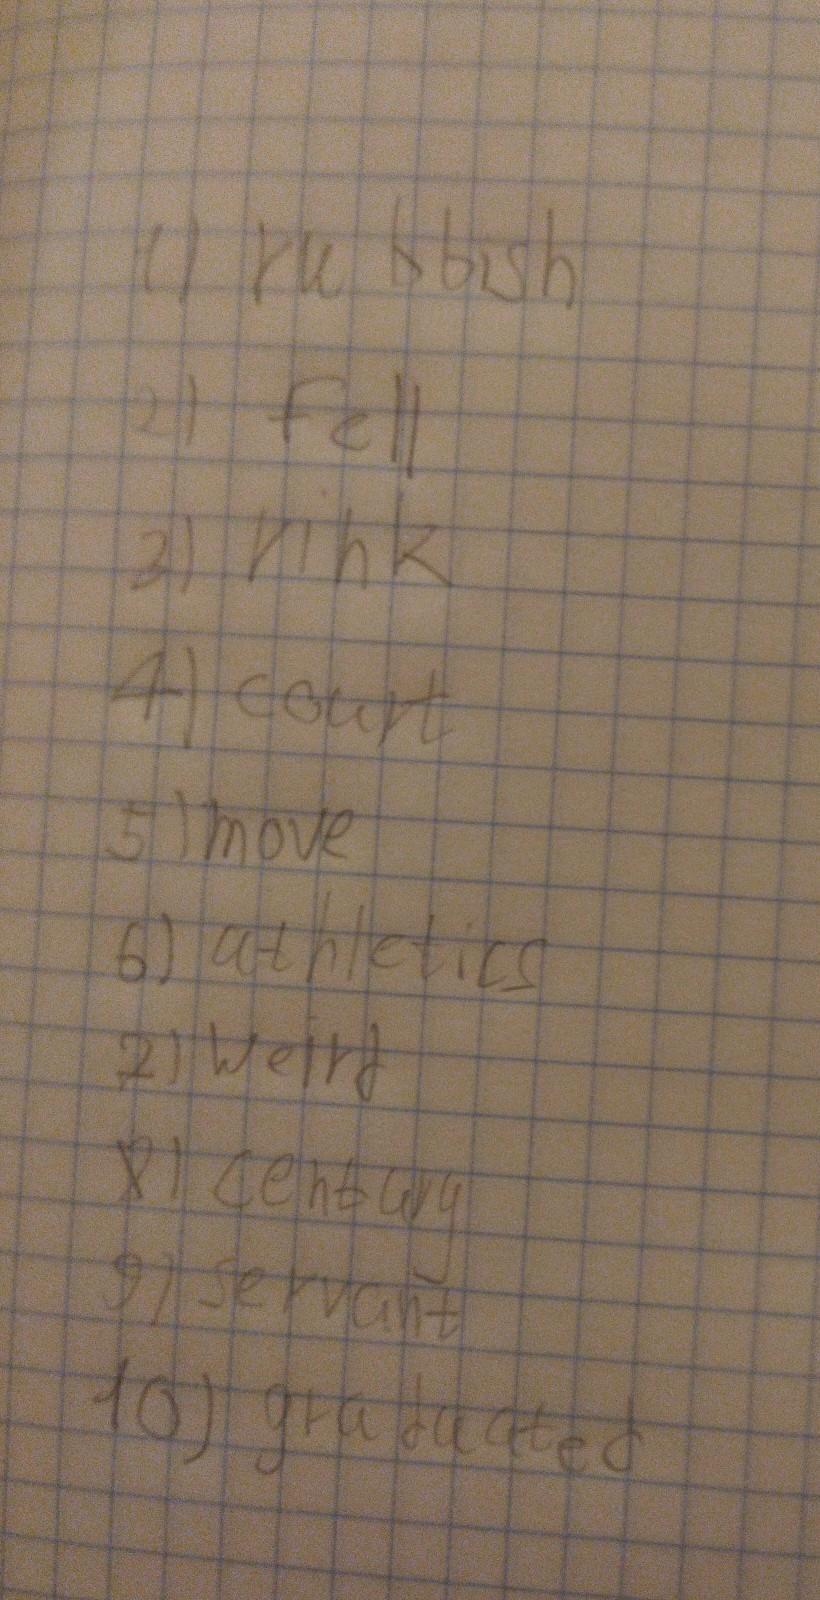 1) rubbish
2) fell
3) rink
4) court
5) move
6) athletics
7) weird
8) century
9) servant
10) graduated